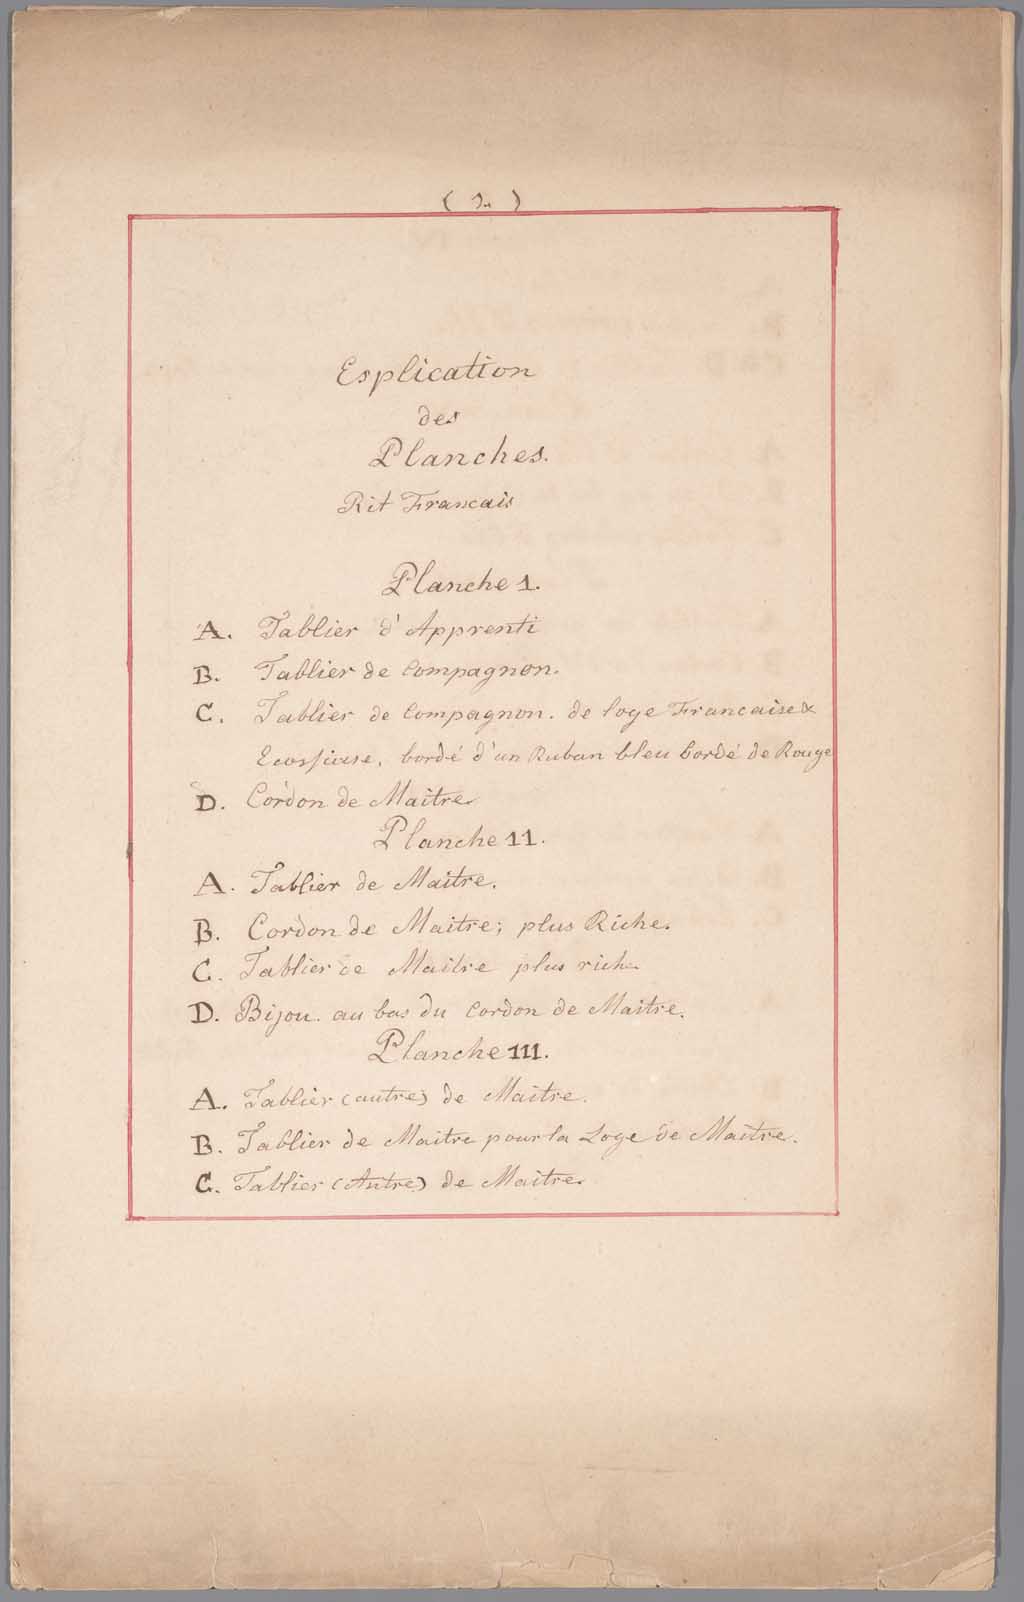 Esplication
des
Planches.
Rit Francais
Planche 1.
A. Tablier d'Apprenti
B. Tablier de Compagnon.
C. Tablier de Compagnon. de loge Francaise &
bordé d'un Ruban bleu bordé de Rouge
D. Cordon de Maitre
Planche 11.
A. Tablier de Maitre.
B. Cordon de Maitre; plus Riche.
C. Tablier de Maitre plus riche
D. Bijou. au bas du Cordon de Maitre.
Planche 111.
A. Tablier (autre) de Maitre.
B. Tablier de Maitre pour la Loge de Maitre.
C. Tablier (Autre) de Maitre